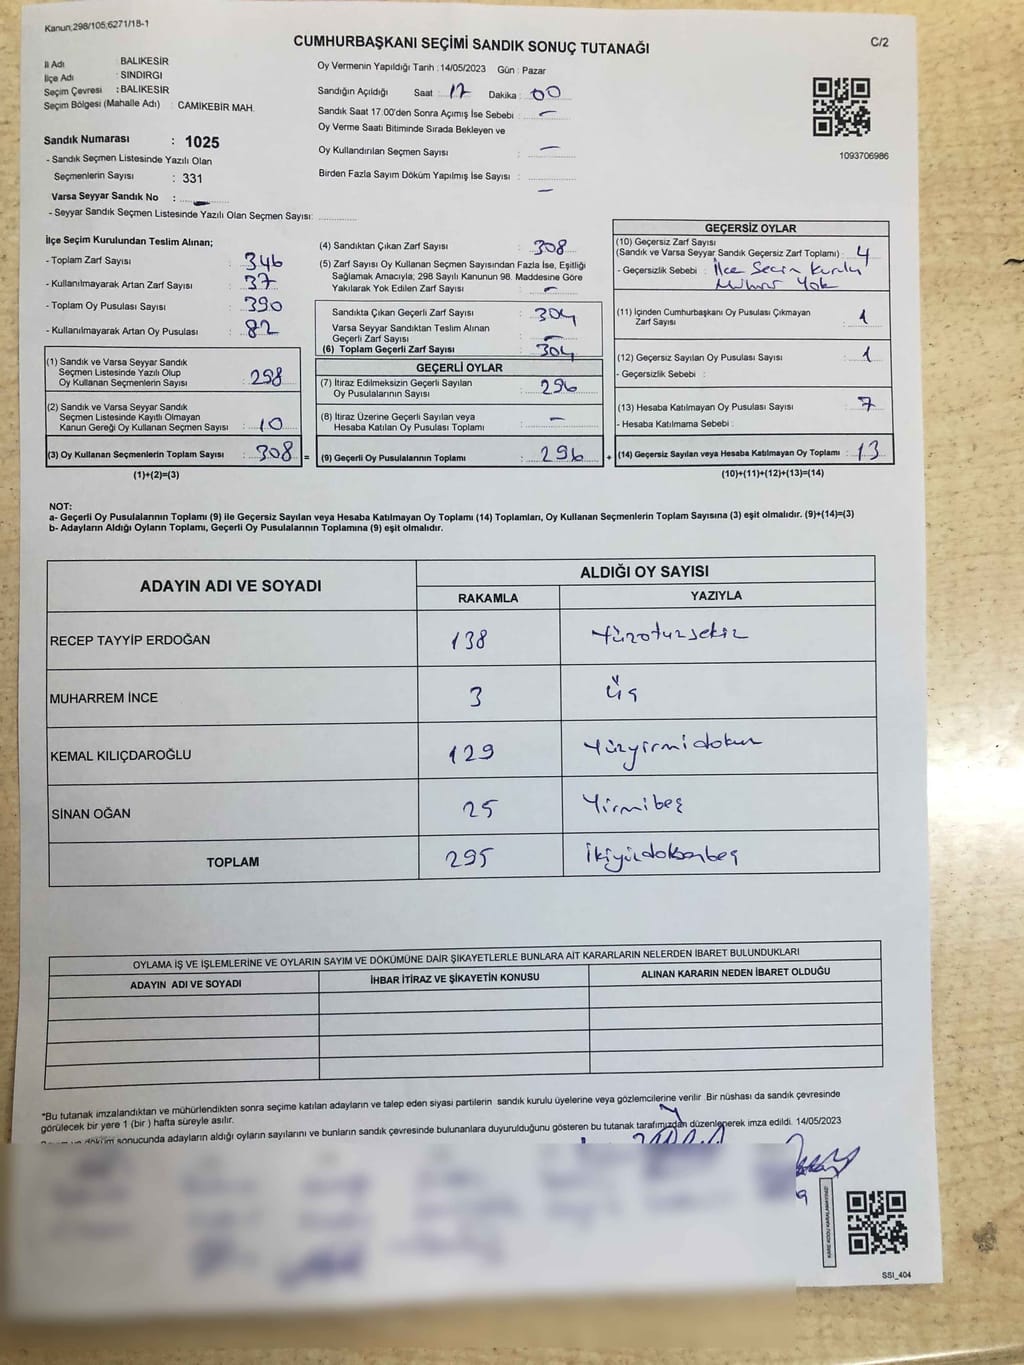 Kanun,298/105,6271/18-1
CUMHURBAŞKANI SEÇİMİ SANDIK SONUÇ TUTANAĞI
C/2
İl Adı : BALIKESİR
İlçe Adı : SINDIRGI
Seçim Çevresi : BALIKESİR
Seçim Bölgesi (Mahalle Adı) : CAMİKEBİR MAH.
Sandık Numarası : 1025
- Sandık Seçmen Listesinde Yazılı Olan
Seçmenlerin Sayısı : 331
Varsa Seyyar Sandık No : —
- Seyyar Sandık Seçmen Listesinde Yazılı Olan Seçmen Sayısı:
Oy Vermenin Yapıldığı Tarih : 14/05/2023 Gün : Pazar
Sandığın Açıldığı Saat : 17 Dakika : 00
Sandık Saat 17:00'den Sonra Açımış İse Sebebi : —
Oy Verme Saati Bitiminde Sırada Bekleyen ve
Oy Kullandırılan Seçmen Sayısı : —
Birden Fazla Sayım Döküm Yapılmış İse Sayısı : —
1093706986
İlçe Seçim Kurulundan Teslim Alınan;
- Toplam Zarf Sayısı : 346
- Kullanılmayarak Artan Zarf Sayısı : 37
- Toplam Oy Pusulası Sayısı : 390
- Kullanılmayarak Artan Oy Pusulası : 82
(1) Sandık ve Varsa Seyyar Sandık
Seçmen Listesinde Yazılı Olup
Oy Kullanan Seçmenlerin Sayısı : 298
(2) Sandık ve Varsa Seyyar Sandık
Seçmen Listesinde Kayıtlı Olmayan
Kanun Gereği Oy Kullanan Seçmen Sayısı : 10
(3) Oy Kullanan Seçmenlerin Toplam Sayısı : 308 =
(1)+(2)=(3)
(4) Sandıktan Çıkan Zarf Sayısı : 308
(5) Zarf Sayısı Oy Kullanan Seçmen Sayısından Fazla İse, Eşitliği
Sağlamak Amacıyla; 298 Sayılı Kanunun 98. Maddesine Göre
Yakılarak Yok Edilen Zarf Sayısı : —
Sandıkta Çıkan Geçerli Zarf Sayısı : 304
Varsa Seyyar Sandıktan Teslim Alınan
Geçerli Zarf Sayısı : —
(6) Toplam Geçerli Zarf Sayısı : 304
GEÇERLİ OYLAR
(7) İtiraz Edilmeksizin Geçerli Sayılan
Oy Pusulalarının Sayısı : 296
(8) İtiraz Üzerine Geçerli Sayılan veya
Hesaba Katılan Oy Pusulası Toplamı : —
(9) Geçerli Oy Pusulalarının Toplamı : 296 +
GEÇERSİZ OYLAR
(10) Geçersiz Zarf Sayısı
(Sandık ve Varsa Seyyar Sandık Geçersiz Zarf Toplamı) : 4
- Geçersizlik Sebebi : İlçe Seçim Kurulu
Mührü Yok
(11) İçinden Cumhurbaşkanı Oy Pusulası Çıkmayan
Zarf Sayısı : 1
(12) Geçersiz Sayılan Oy Pusulası Sayısı : 1
- Geçersizlik Sebebi :
(13) Hesaba Katılmayan Oy Pusulası Sayısı : 7
- Hesaba Katılmama Sebebi :
(14) Geçersiz Sayılan veya Hesaba Katılmayan Oy Toplamı : 13
(10)+(11)+(12)+(13)=(14)
NOT:
a- Geçerli Oy Pusulalarının Toplamı (9) ile Geçersiz Sayılan veya Hesaba Katılmayan Oy Toplamı (14) Toplamları, Oy Kullanan Seçmenlerin Toplam Sayısına (3) eşit olmalıdır. (9)+(14)=(3)
b- Adayların Aldığı Oyların Toplamı, Geçerli Oy Pusulalarının Toplamına (9) eşit olmalıdır.
ADAYIN ADI VE SOYADI
ALDIĞI OY SAYISI
RAKAMLA YAZIYLA
RECEP TAYYİP ERDOĞAN 138 Yüzotuzsekiz
MUHARREM İNCE 3 Üç
KEMAL KILIÇDAROĞLU 129 Yüzyirmidokuz
SİNAN OĞAN 25 Yirmibeş
TOPLAM 295 İkiyüzdoksanbeş
OYLAMA İŞ VE İŞLEMLERİNE VE OYLARIN SAYIM VE DÖKÜMÜNE DAİR ŞİKAYETLERLE BUNLARA AİT KARARLARIN NELERDEN İBARET BULUNDUKLARI
ADAYIN ADI VE SOYADI İHBAR İTİRAZ VE ŞİKAYETİN KONUSU ALINAN KARARIN NEDEN İBARET OLDUĞU
"Bu tutanak imzalandıktan ve mühürlendikten sonra seçime katılan adayların ve talep eden siyasi partilerin sandık kurulu üyelerine veya gözlemcilerine verilir .Bir nüshası da sandık çevresinde
görülecek bir yere 1 (bir ) hafta süreyle asılır.
döküm sonucunda adayların aldığı oyların sayılarını ve bunların sandık çevresinde bulunanlara duyurulduğunu gösteren bu tutanak tarafımızdan düzenlenerek imza edildi. 14/05/2023
KARE KODU KARALAMAYINIZ!
SSI_404